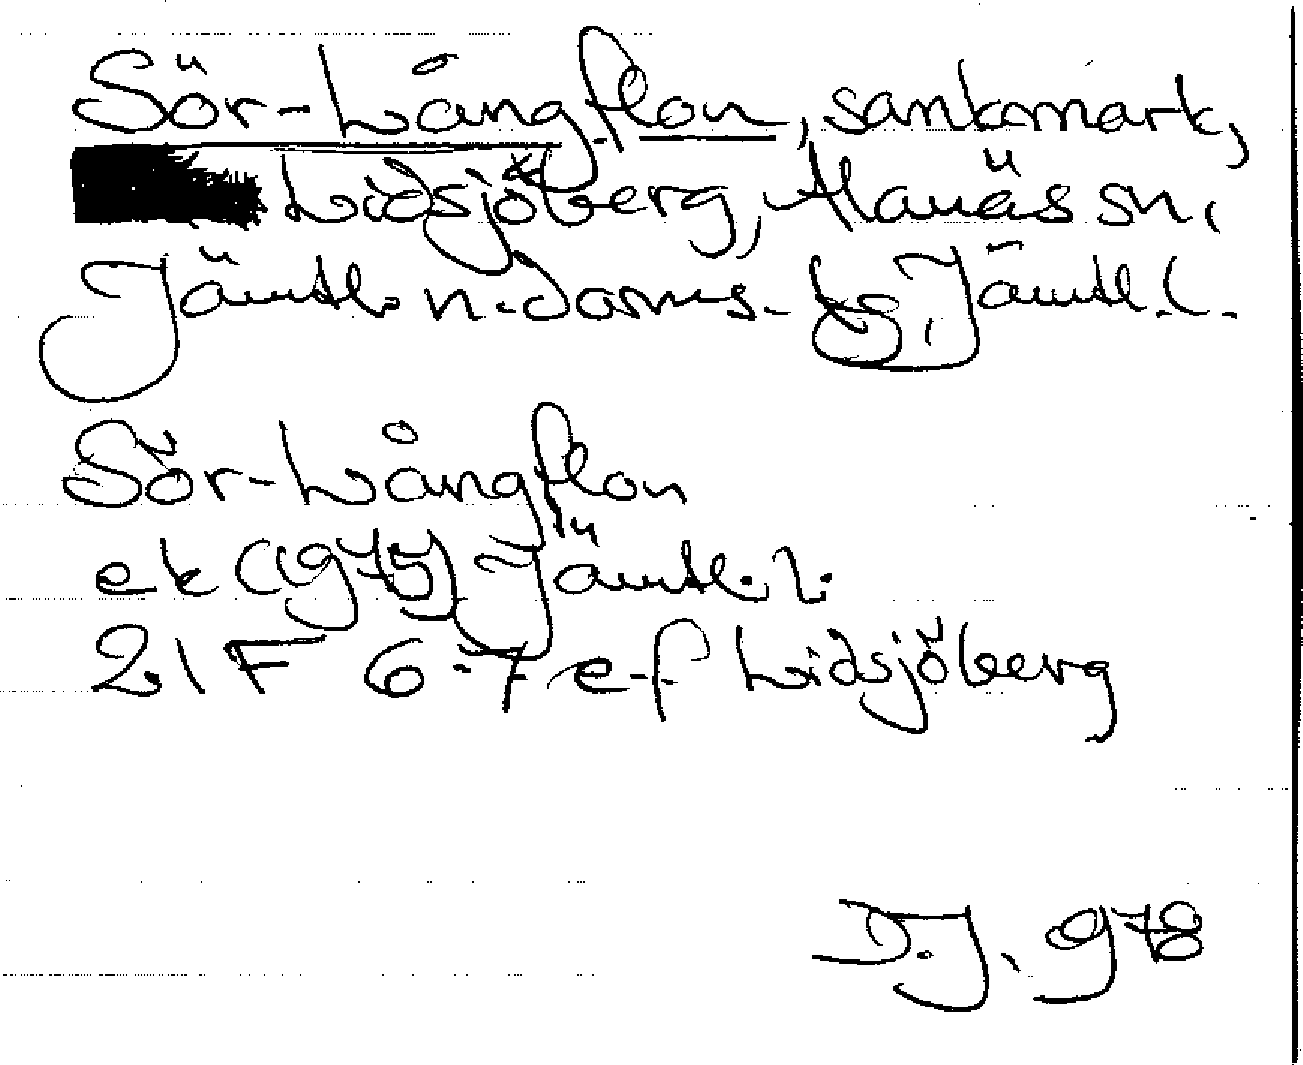 Sör-Långflon, sankmark,
Lidsjöberg, Alanäs sn,
Jämtl. n. doms. tg, Jämtl. l.
Sör-Långflon
ek (1975) Jämtl. l.
21F 6-7 e-f Lidsjöberg
D.J. 978